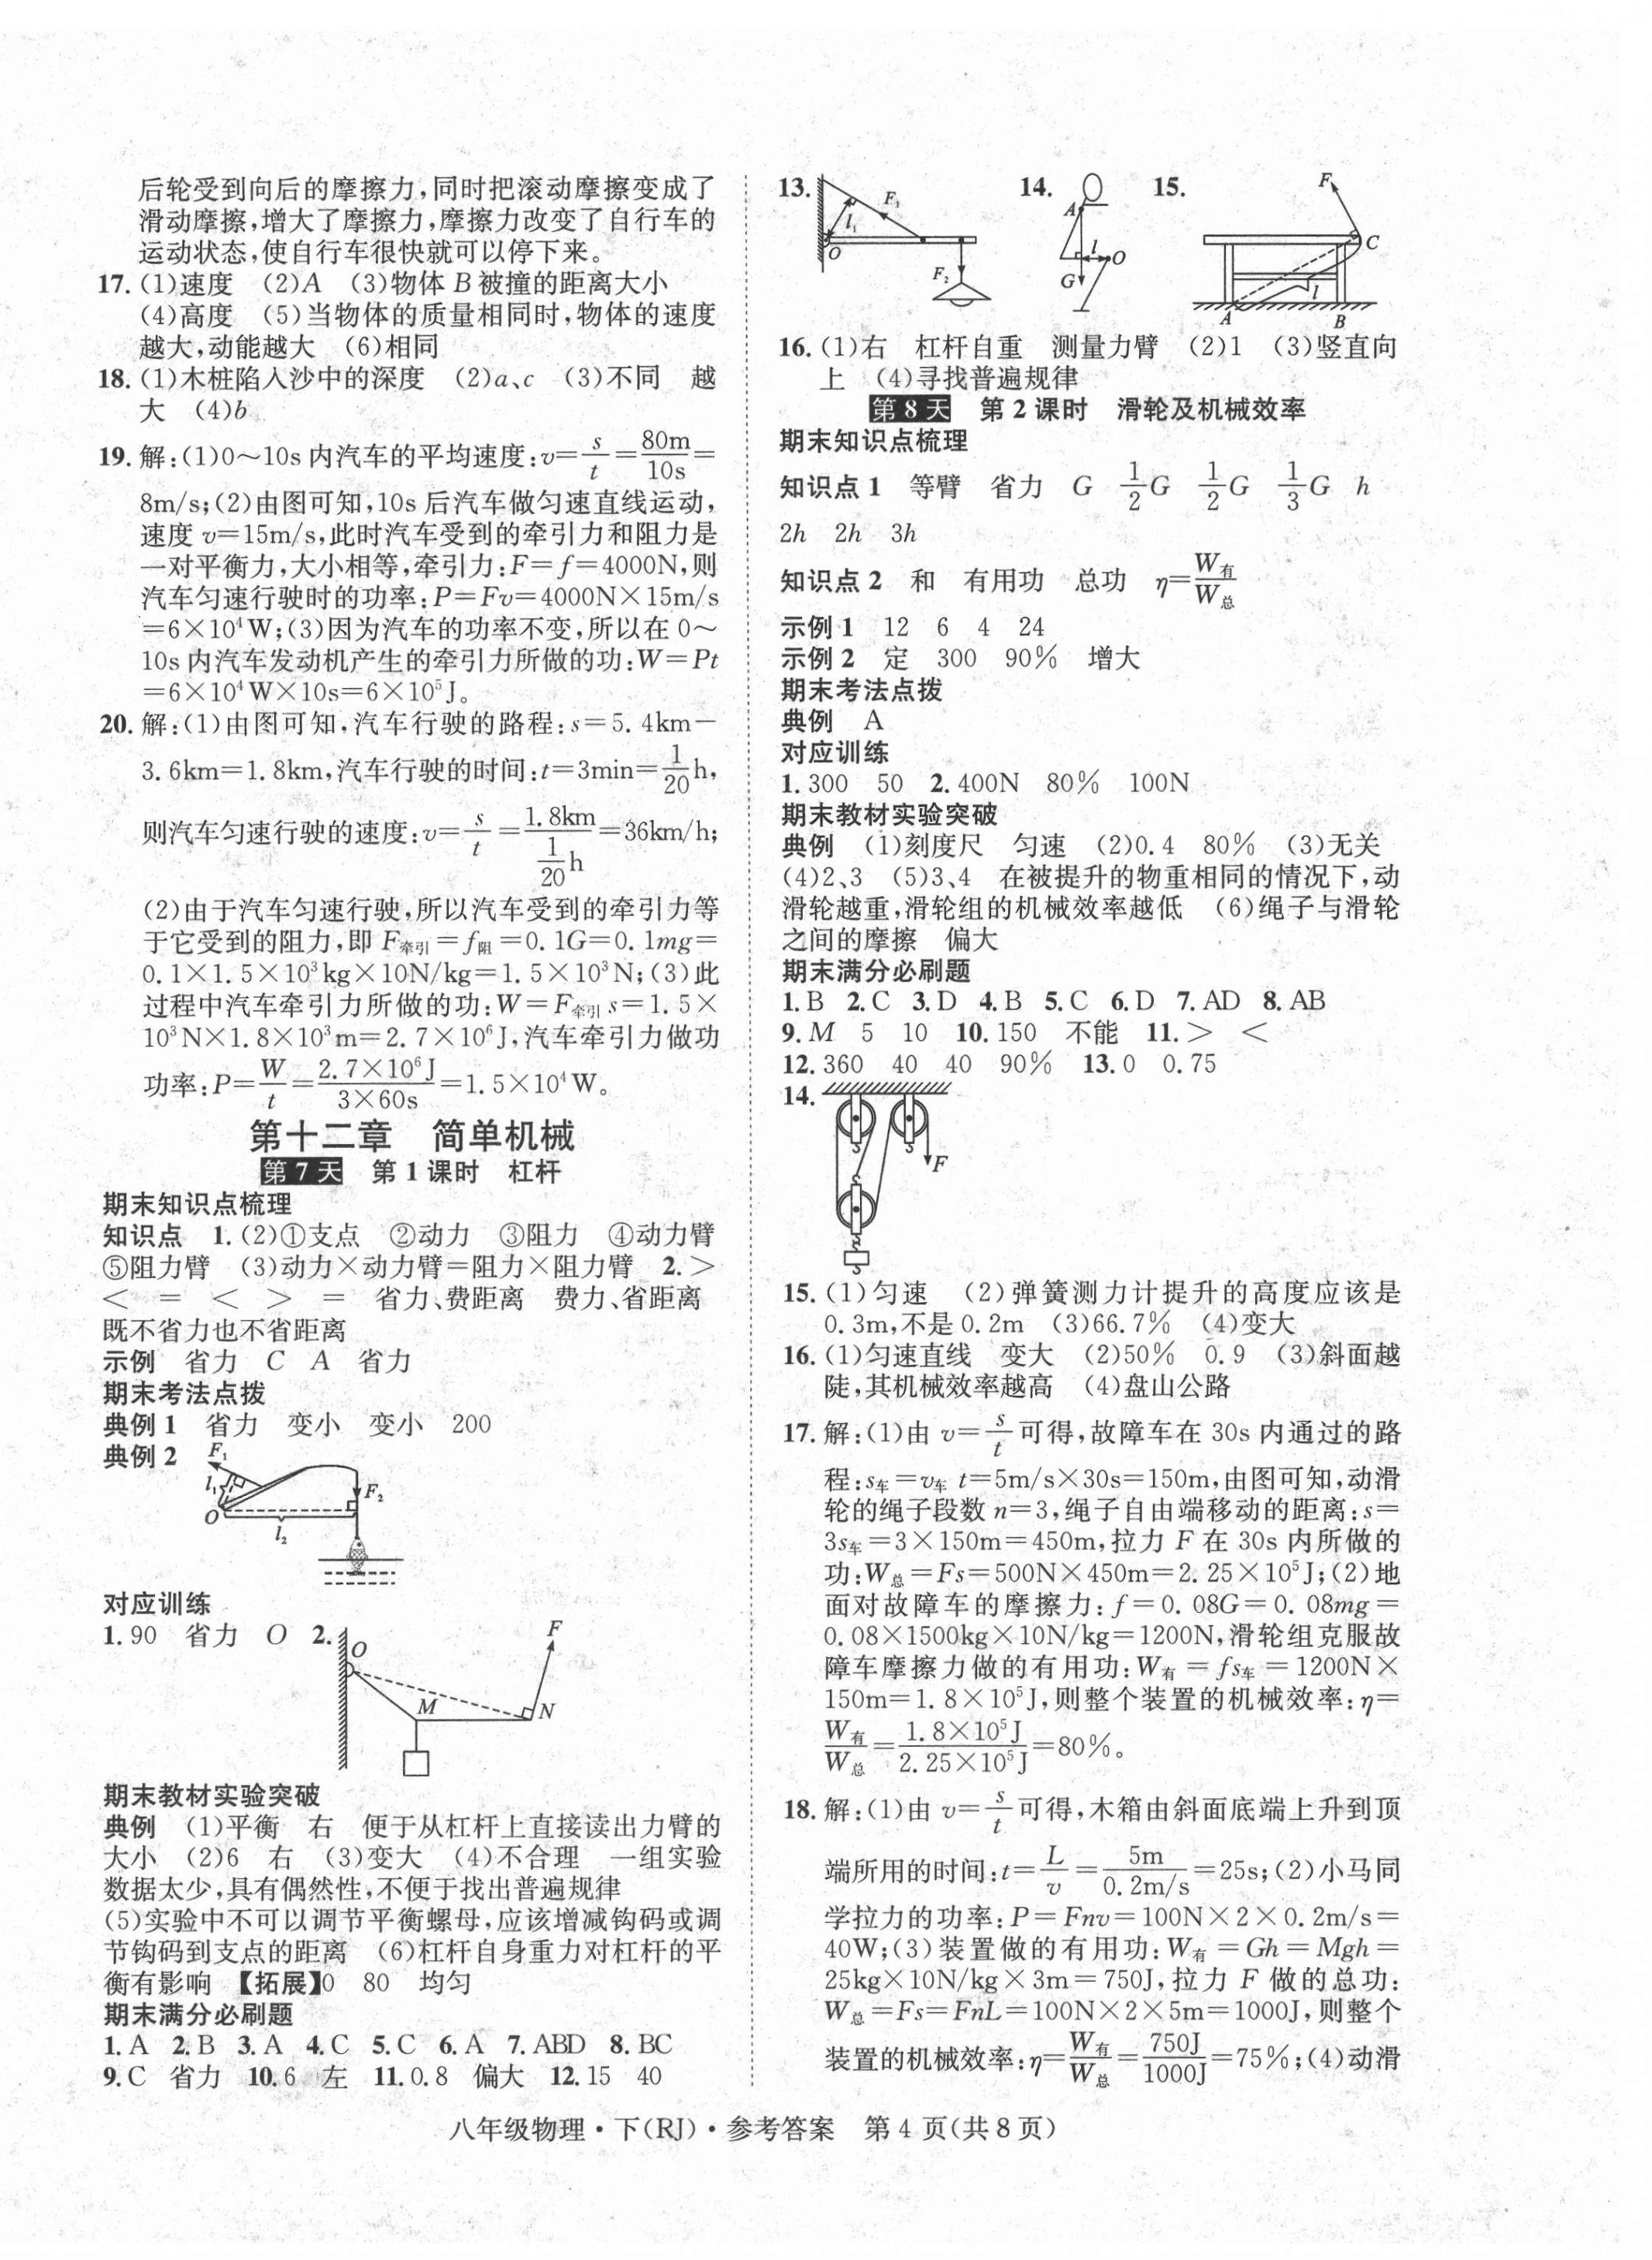 后轮受到向后的摩擦力,同时把滚动摩擦变成了
滑动摩擦,增大了摩擦力,摩擦力改变了自行车的
运动状态,使自行车很快就可以停下来。
17. (1)速度 (2)A (3)物体 B 被撞的距离大小
(4)高度 (5)当物体的质量相同时,物体的速度
越大,动能越大 (6)相同
18. (1)木桩陷入沙中的深度 (2)a、c (3)不同 越
大 (4)b
19. 解:(1)0～10s 内汽车的平均速度:v=s/t=80m/10s=
8m/s;(2)由图可知,10s 后汽车做匀速直线运动,
速度 v=15m/s,此时汽车受到的牵引力和阻力是
一对平衡力,大小相等,牵引力:F=f=4000N,则
汽车匀速行驶时的功率:P=Fv=4000N×15m/s
=6×10⁴W;(3)因为汽车的功率不变,所以在 0～
10s 内汽车发动机产生的牵引力所做的功:W=Pt
=6×10⁴W×10s=6×10⁵J。
20. 解:(1)由图可知,汽车行驶的路程:s=5.4km-
3.6km=1.8km,汽车行驶的时间:t=3min=1/20h,
则汽车匀速行驶的速度:v=s/t=1.8km/(1/20 h)=36km/h;
(2)由于汽车匀速行驶,所以汽车受到的牵引力等
于它受到的阻力,即 F牵引=f阻=0.1G=0.1mg=
0.1×1.5×10³kg×10N/kg=1.5×10³N;(3)此
过程中汽车牵引力所做的功:W=F牵引s=1.5×
10³N×1.8×10³m=2.7×10⁶J,汽车牵引力做功
功率:P=W/t=2.7×10⁶J/3×60s=1.5×10⁴W。
第十二章 简单机械
第7天 第1课时 杠杆
期末知识点梳理
知识点 1. (2)①支点 ②动力 ③阻力 ④动力臂
⑤阻力臂 (3)动力×动力臂=阻力×阻力臂 2. >
< = < > = 省力、费距离 费力、省距离
既不省力也不省距离
示例 省力 C A 省力
期末考法点拨
典例1 省力 变小 变小 200
典例2
F₁
l₁
F₂
O
l₂
对应训练
1. 90 省力 O 2.
O
F
M
N
期末教材实验突破
典例 (1)平衡 右 便于从杠杆上直接读出力臂的
大小 (2)6 右 (3)变大 (4)不合理 一组实验
数据太少,具有偶然性,不便于找出普遍规律
(5)实验中不可以调节平衡螺母,应该增减钩码或调
节钩码到支点的距离 (6)杠杆自身重力对杠杆的平
衡有影响 【拓展】0 80 均匀
期末满分必刷题
1. A 2. B 3. A 4. C 5. C 6. A 7. ABD 8. BC
9. C 省力 10. 6 左 11. 0.8 偏大 12. 15 40
13. 14. 15.
F₁
l₁
O
F₂
A
l
O
G
F
C
l
A
B
16. (1)右 杠杆自重 测量力臂 (2)1 (3)竖直向
上 (4)寻找普遍规律
第8天 第2课时 滑轮及机械效率
期末知识点梳理
知识点1 等臂 省力 G 1/2G 1/2G 1/3G h
2h 2h 3h
知识点2 和 有用功 总功 η=W有/W总
示例1 12 6 4 24
示例2 定 300 90% 增大
期末考法点拨
典例 A
对应训练
1. 300 50 2. 400N 80% 100N
期末教材实验突破
典例 (1)刻度尺 匀速 (2)0.4 80% (3)无关
(4)2、3 (5)3、4 在被提升的物重相同的情况下,动
滑轮越重,滑轮组的机械效率越低 (6)绳子与滑轮
之间的摩擦 偏大
期末满分必刷题
1. B 2. C 3. D 4. B 5. C 6. D 7. AD 8. AB
9. M 5 10 10. 150 不能 11. > <
12. 360 40 40 90% 13. 0 0.75
14.
F
15. (1)匀速 (2)弹簧测力计提升的高度应该是
0.3m,不是0.2m (3)66.7% (4)变大
16. (1)匀速直线 变大 (2)50% 0.9 (3)斜面越
陡,其机械效率越高 (4)盘山公路
17. 解:(1)由 v=s/t可得,故障车在 30s 内通过的路
程:s车=v车t=5m/s×30s=150m,由图可知,动滑
轮的绳子段数 n=3,绳子自由端移动的距离:s=
3s车=3×150m=450m,拉力 F 在 30s 内所做的
功:W总=Fs=500N×450m=2.25×10⁵J;(2)地
面对故障车的摩擦力:f=0.08G=0.08mg=
0.08×1500kg×10N/kg=1200N,滑轮组克服故
障车摩擦力做的有用功:W有=fs车=1200N×
150m=1.8×10⁵J,则整个装置的机械效率:η=
W有/W总=1.8×10⁵J/2.25×10⁵J=80%。
18. 解:(1)由 v=s/t可得,木箱由斜面底端上升到顶
端所用的时间:t=L/v=5m/0.2m/s=25s;(2)小马同
学拉力的功率:P=Fnv=100N×2×0.2m/s=
40W;(3)装置做的有用功:W有=Gh=Mgh=
25kg×10N/kg×3m=750J,拉力 F 做的总功:
W总=Fs=FnL=100N×2×5m=1000J,则整个
装置的机械效率:η=W有/W总=750J/1000J=75%;(4)动滑
八年级物理·下(RJ)·参考答案 第4页(共8页)